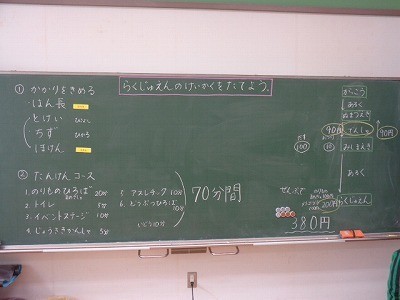 らくじゅえんのけいかくをたてよう。
① かかりをきめる
・はん長
・とけい
・ちず
・ほけん
② たんけんコース
1.のりものひろば 20分
2.トイレ 5分
3.イベントステージ 10分
4.じょうききかんしゃ 5分
5.アスレチック 10分
6.どうぶつひろば 10分
いどう10分
70分間
がっこう
あるく
ぬまづえき
90円 でんしゃ 90円
みしまえき
あるく
らくじゅえん
だす
100
10
ぜんぶで
200円
380円